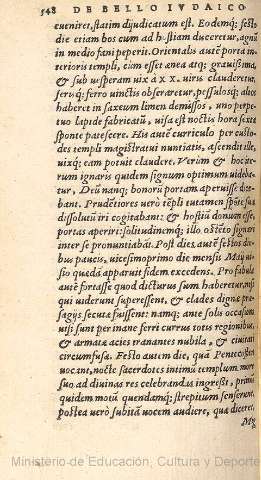 548 DE BELLO IVDAICO
eueniret, statim dijudicatum est. Eodemq; festo
die etiam bos cum ad hostiam duceretur, agnū
in medio fani peperit. Orientalis autē porta in-
terioris templi, cùm esset ænea atq; grauissima,
& sub uesperam uix à x x. uiris clauderetur,
seris q; ferro uinctis obseraretur, pessulosq; altos
haberet in saxeum limen demissos, uno perpe-
tuo lapide fabricatū, uisa est noctis hora sexta
sponte patescere. His autē curriculo per custo-
des templi magistratui nuntiatis, ascendit ille,
uixq; eam potuit claudere. Verùm & hoc ite-
rum ignaris quidem signum optimum uideba-
tur, Deū nanq; bonorū portam aperuisse dice-
bant. Prudētiores uerò tēpli tutamen spōte sua
dissolutū iri cogitabant: & hostiū donum esse,
portas aperiri: solitudinemq; illo ostēto signari
inter se pronuntiabāt. Post dies autē festos die-
bus paucis, uicesimoprimo die mensis Maij ui-
sio quædā apparuit fidem excedens. Pro fabula
autē fortasse quod dicturus sum haberetur, nisi
qui uiderunt superessent, & clades dignæ præ-
sagijs secutæ fuissent: namq; ante solis occasum
uisi sunt per inane ferri currus totis regionibus,
& armatæ acies tranantes nubila, & ciuitati
circumfusæ. Festo autem die, quā Pentecostē
uocant, nocte sacerdotes intimū templum more
suo ad diuinas res celebrandas ingressi, primū
quidem motū quendamq; strepitum senserunt,
postea uerò subitā uocem audiere, quæ diceret,
Mg
Ministerio de Educación, Cultura y Deporte